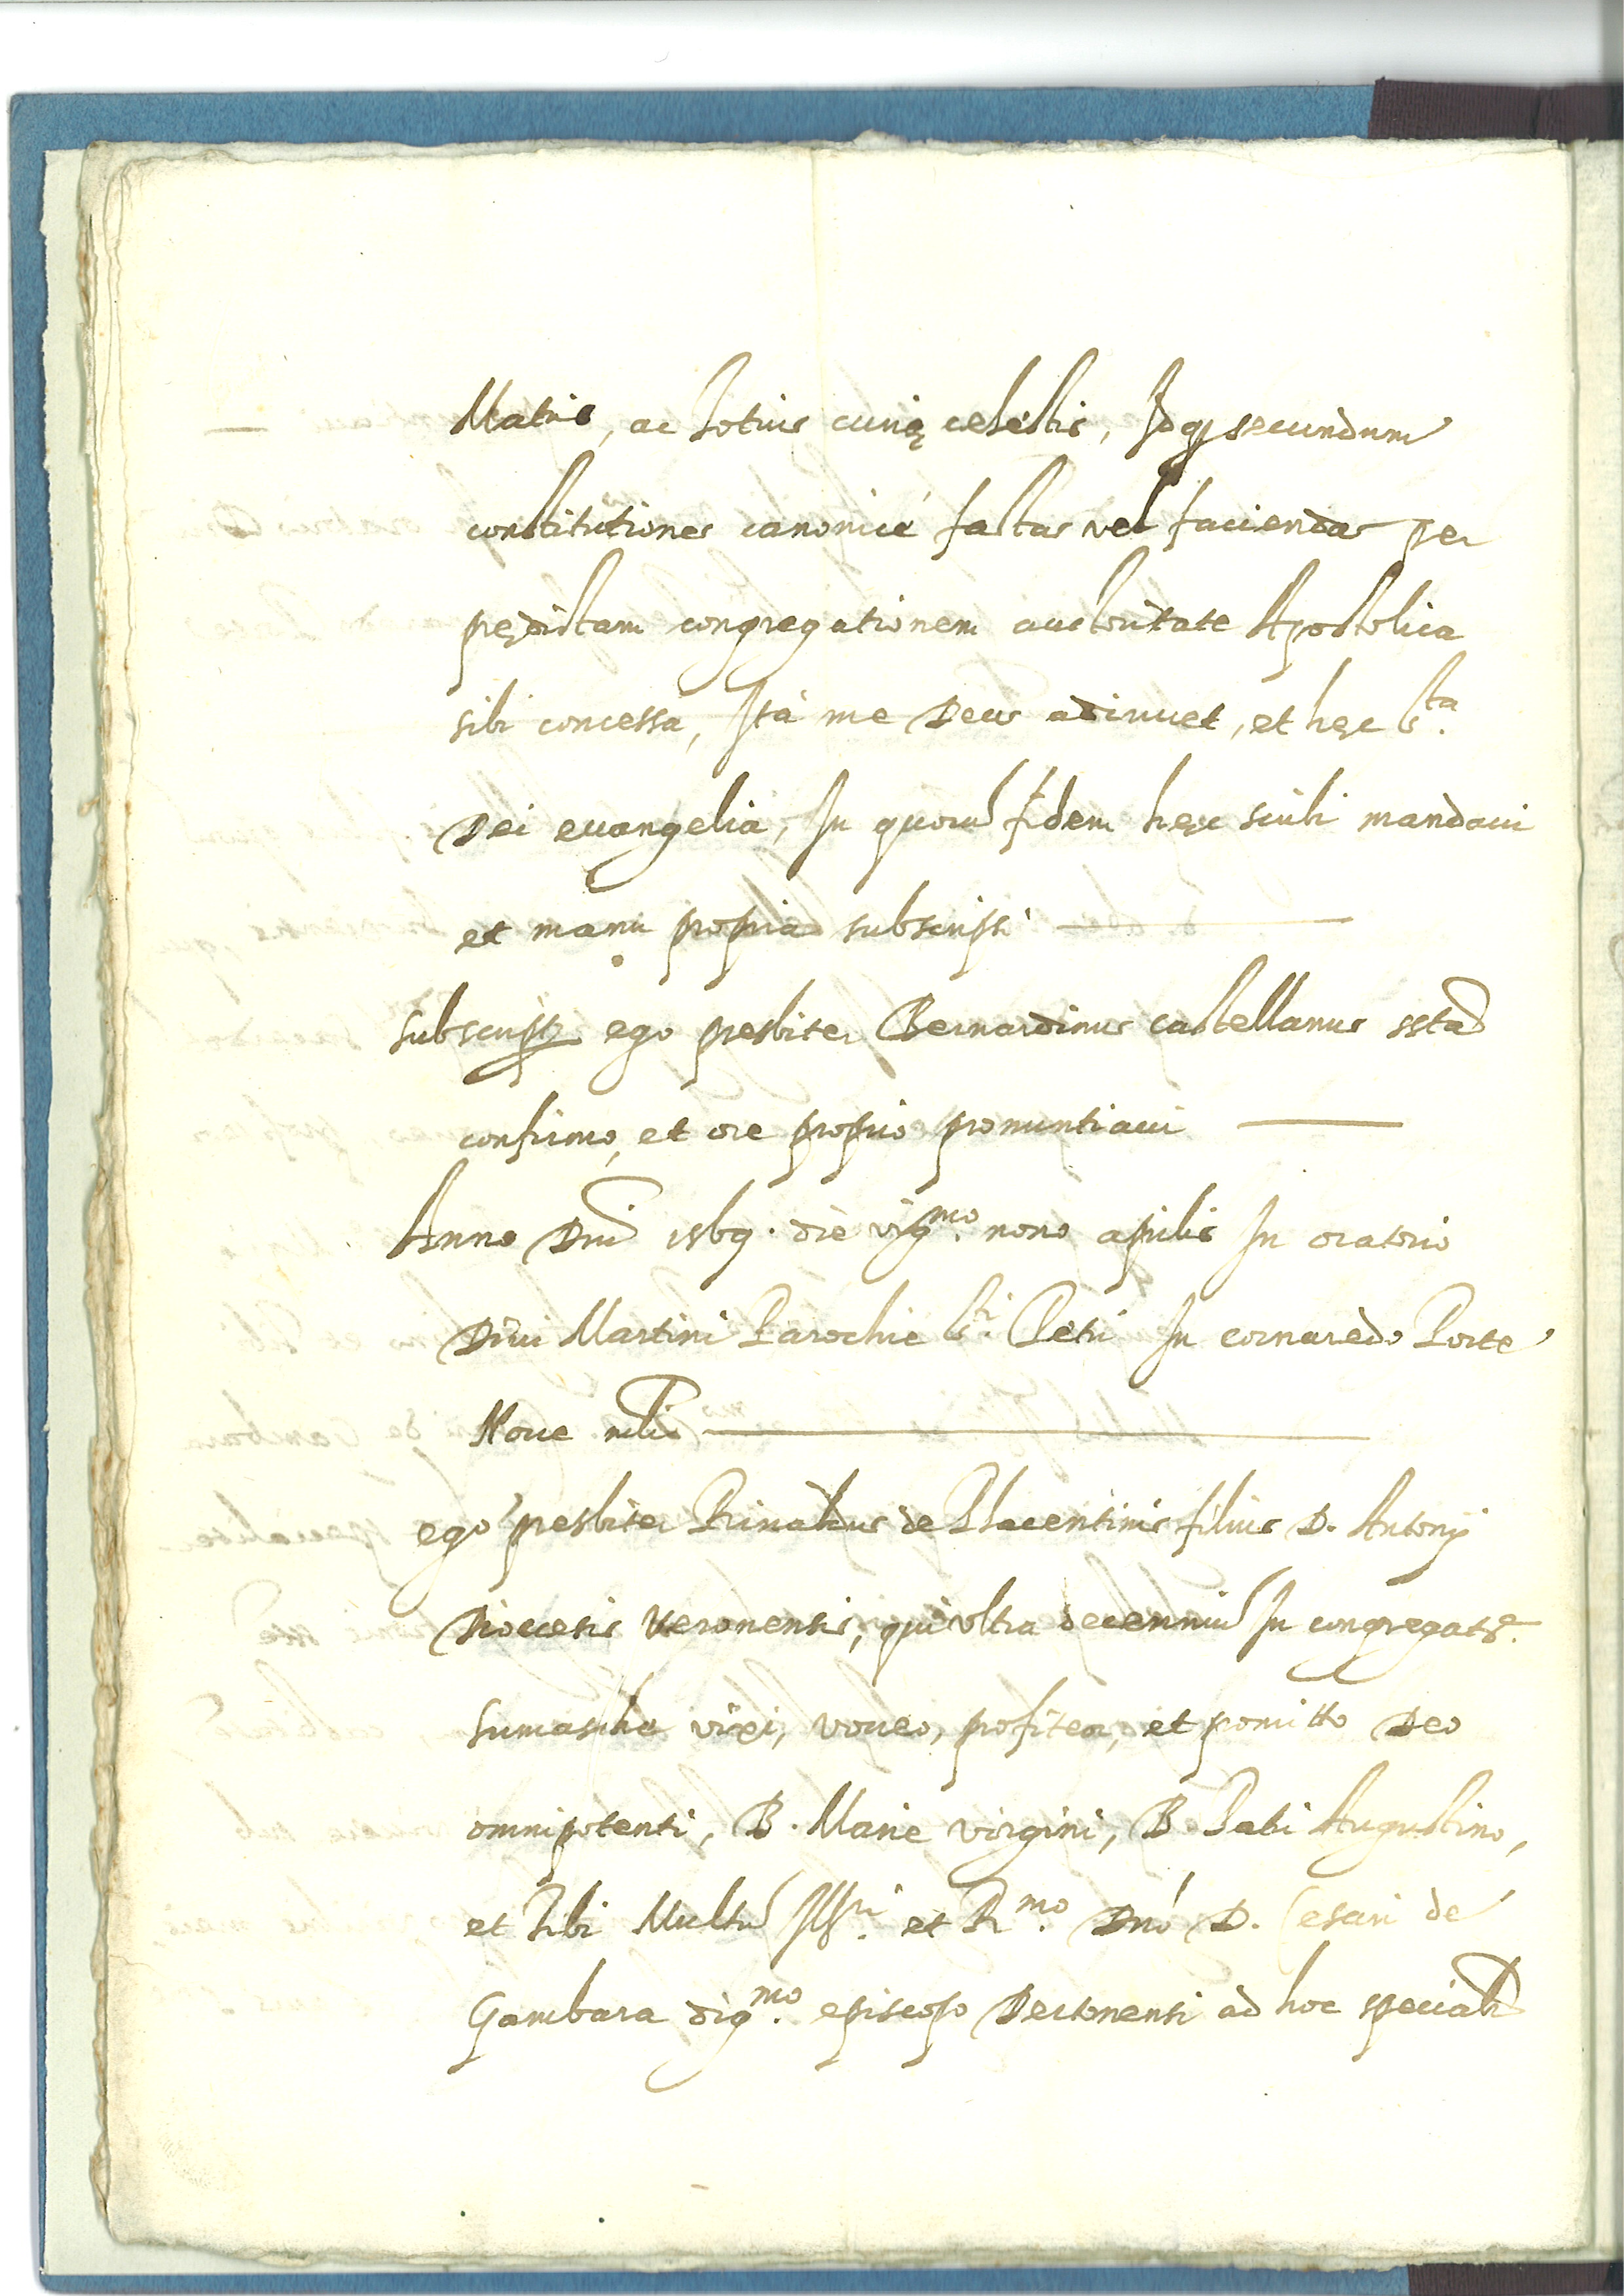 Matris, ac totius curię celestis, Idq; secundum
constitutiones canonicè factas vel faciendas per
prędictam congregationem auctoritate Apostolica
sibi concessa, Ita me Deus adiuuet, et hęc S.ta
Dei euangelia, In quorū fidem hęc scribi mandaui
et manu propria subscripsi
subscript ego presbiter Bernardinus castellanus ssta
confirmo, et ore proprio pronuntiaui
Anno Dni 1569. die vig.mo nono aprilis In oratorio
Diui Martini Parochie S.ti Petri In cornaredo Porte
Noue mlī
ego presbiter Rinaldus de Placentinis filius D. Antonij
Diocesis Veronensis, qui vltra decenniū In congregat.e
Sumascha vixi, voueo, profiteor, et promitto Deo
omnipotenti, B. Marie virgini, B. Patri Augustino,
et tibi Multū Ill.ri et R.mo Dnō D. Cesari de
Gambara dig.mo episcopo Dertonensi ad hoc specialr